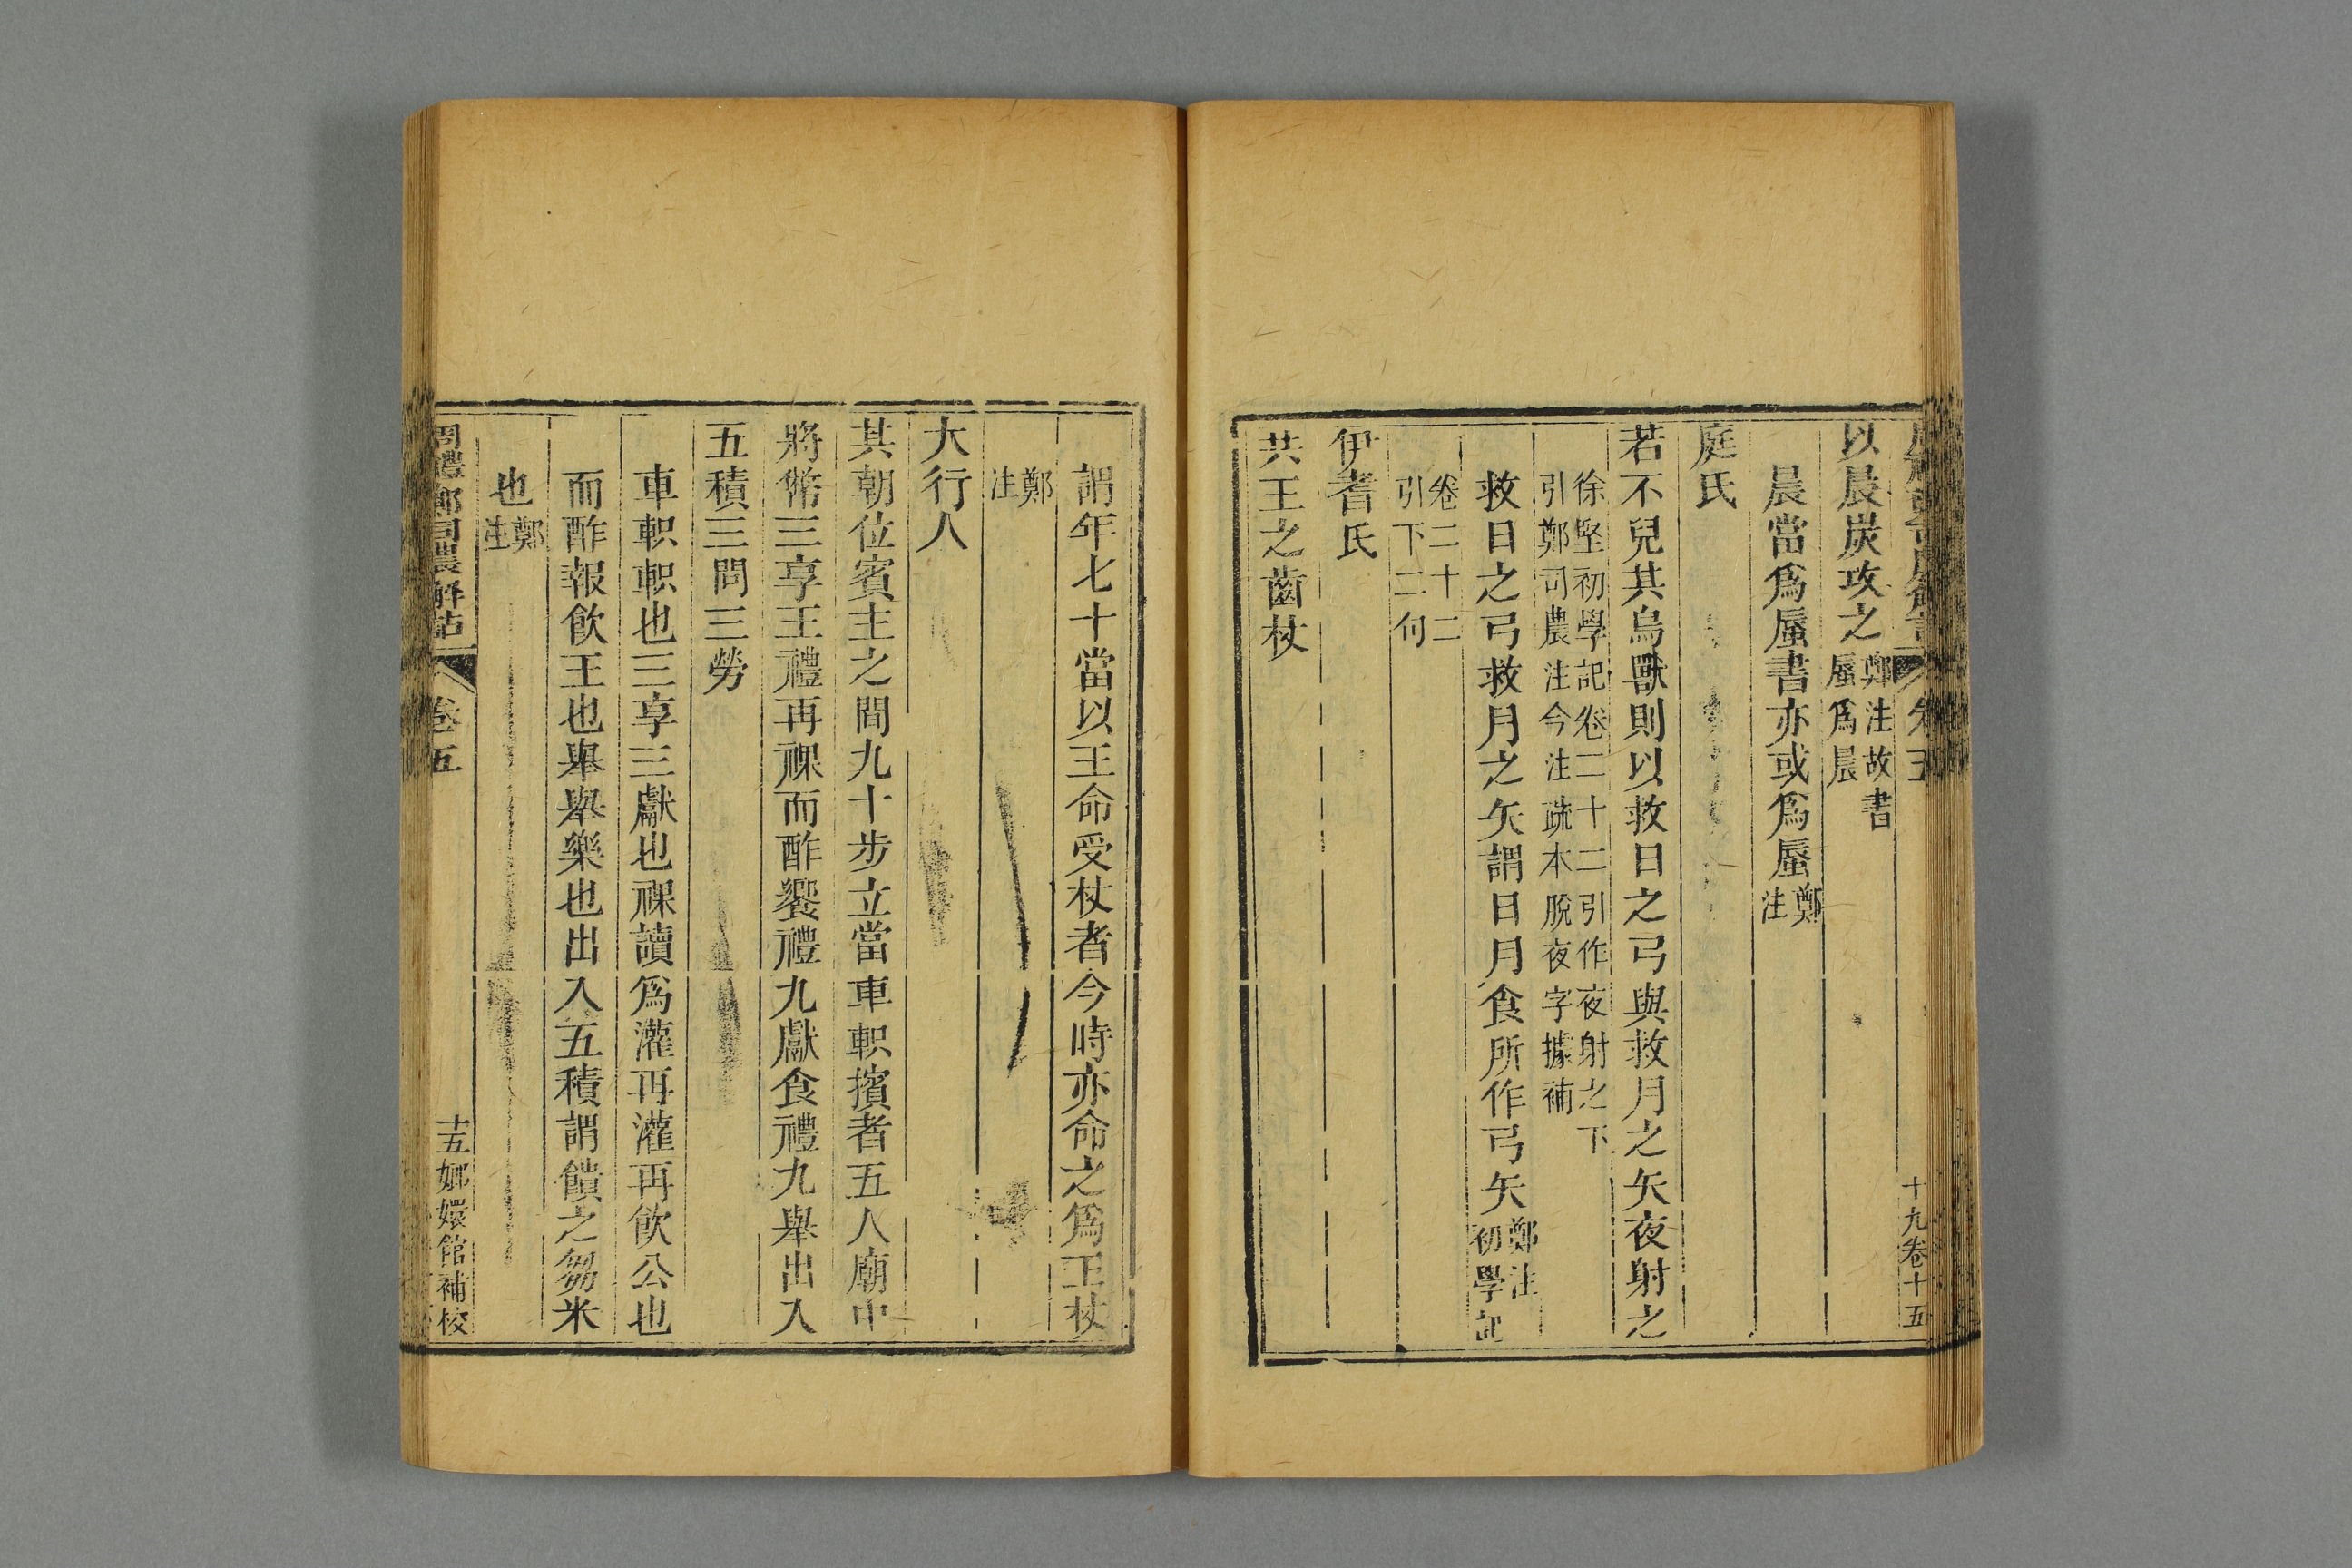 十九卷十五
以晨炭攻之鄭注故書
蜃爲晨
晨當爲蜃書亦或爲蜃鄭注
庭氏
若不見其鳥獸則以救日之弓與救月之矢夜射之
徐堅初學記卷二十二引作夜射之下
引鄭司農注今注疏本脫夜字據補
救日之弓救月之矢謂日月食所作弓矢鄭注
初學記
卷二十二
引下二句
伊耆氏
共王之齒杖
謂年七十當以王命受杖者今時亦命之爲王杖
鄭注
大行人
其朝位賓主之間九十步立當車軹擯者五人廟中
將幣三享王禮再祼而酢饗禮九獻食禮九舉出入
五積三問三勞
車軹軹也三享三獻也祼讀爲灌再灌再飮公也
而酢報飮王也舉舉樂也出入五積謂饋之芻米
也鄭注
周禮鄭司農解詁 卷五 十五嫏嬛館補校